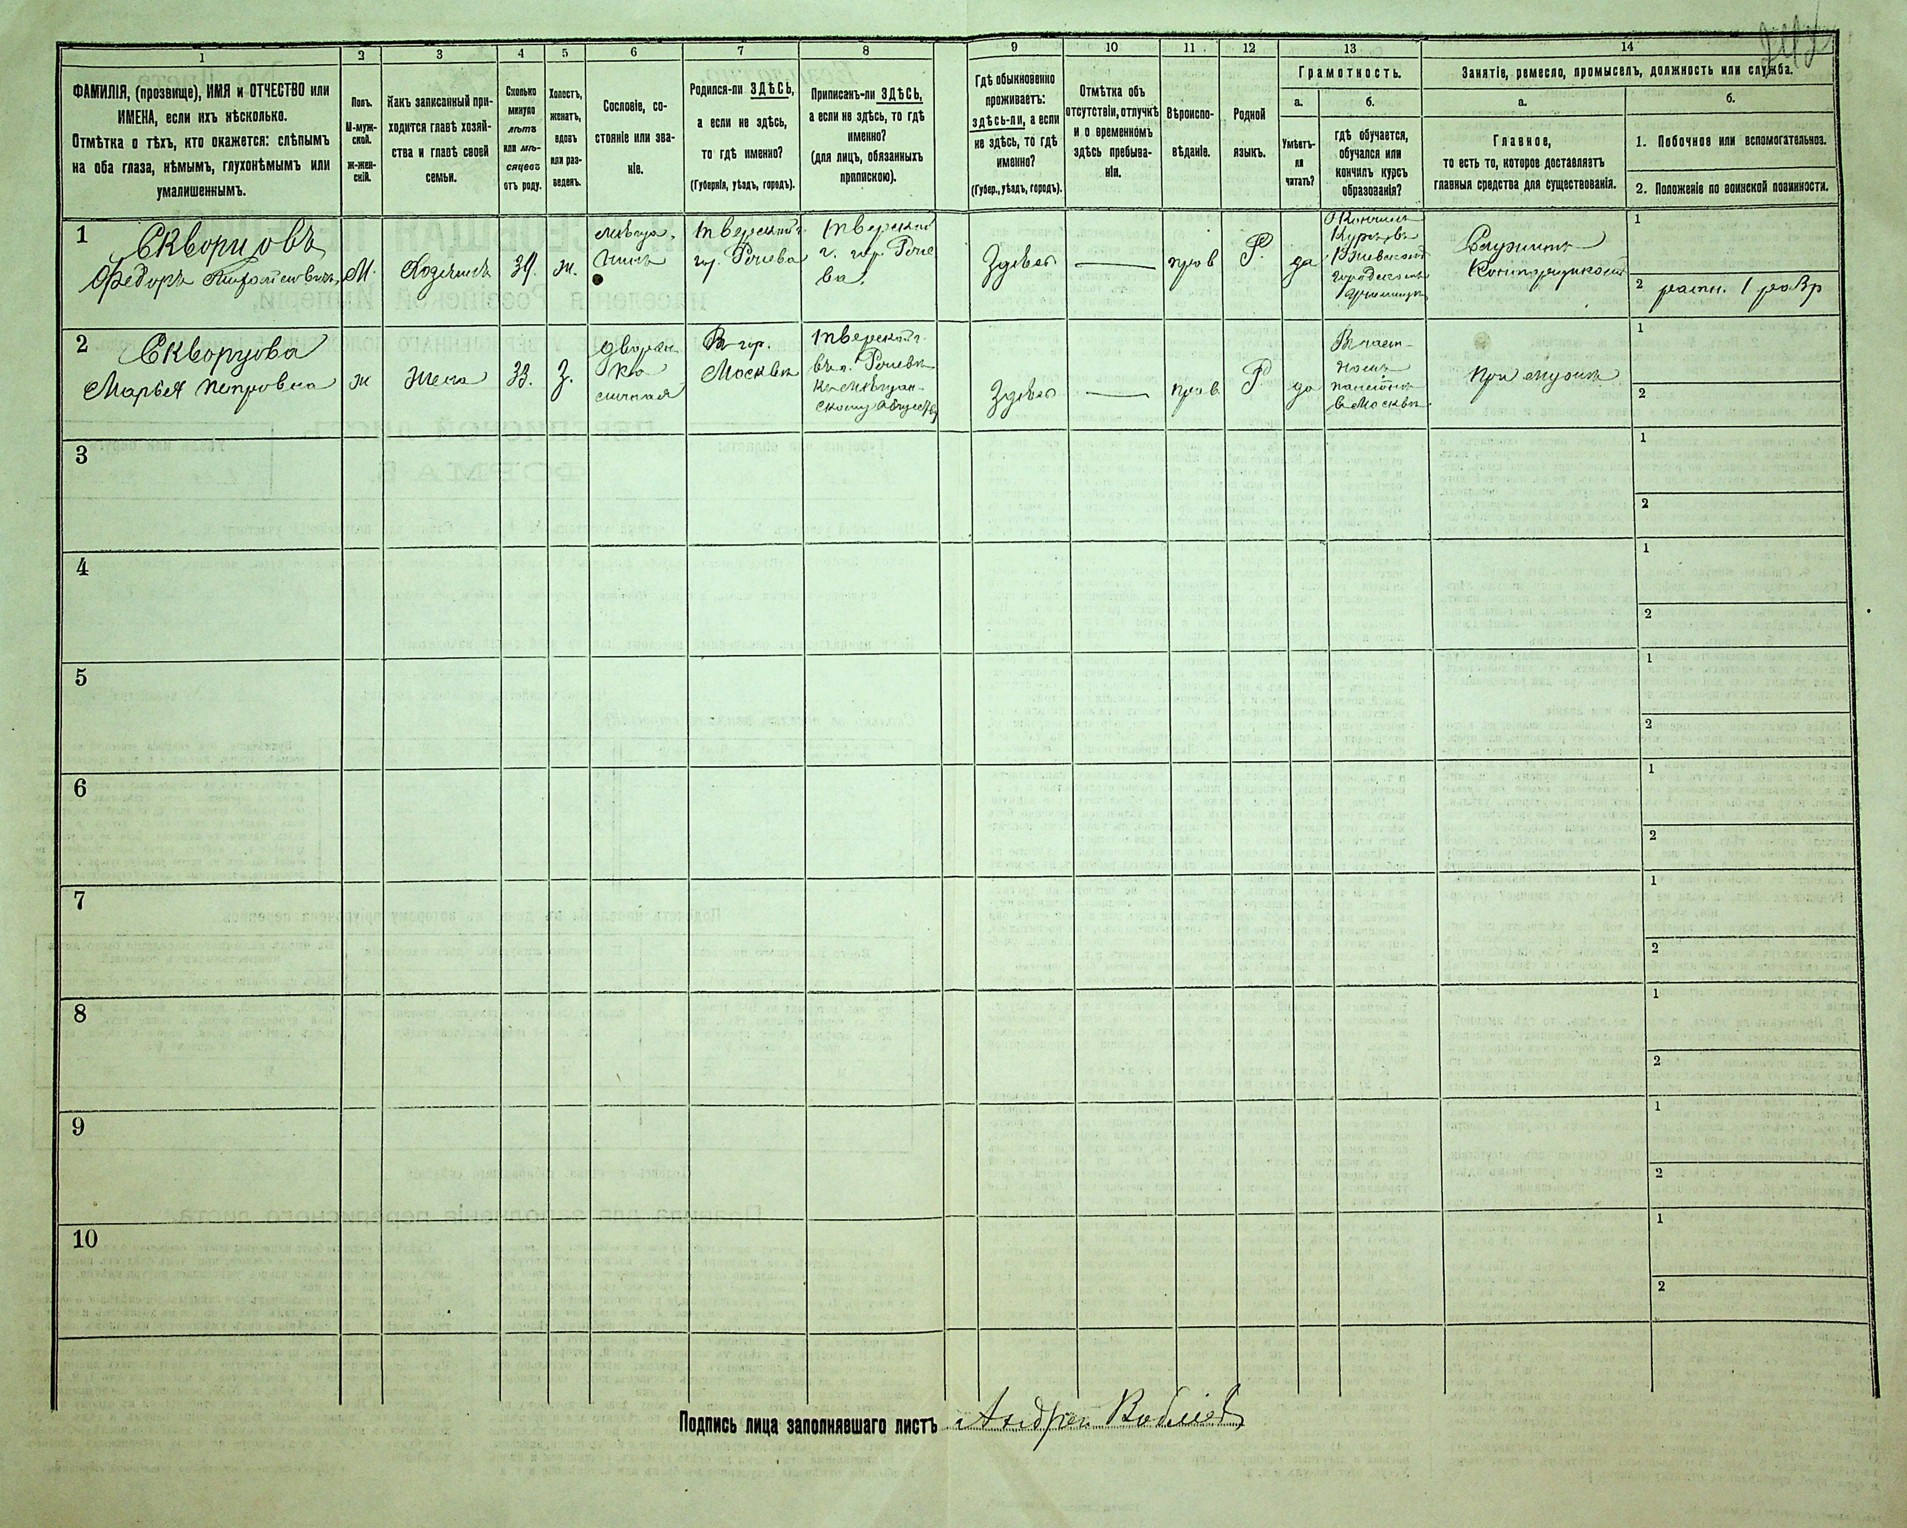 1
2
3
4
5
6
7
8
9
10
11
12
13
14
ФАМИЛІЯ, (прозвище), ИМЯ и ОТЧЕСТВО или
ИМЕНА, если ихъ нѣсколько.
Отмѣтка о тѣхъ, кто окажется: слѣпымъ
на оба глаза, нѣмымъ, глухонѣмымъ или
умалишеннымъ.
Полъ.
М-муж-
ской.
ж-жен-
скій.
Какъ записанный при-
ходится главѣ хозяй-
ства и главѣ своей
семьи.
Сколько
минуло
лѣтъ
или мѣ-
сяцевъ
отъ роду.
Холостъ,
женатъ,
вдовъ
или раз-
веденъ.
Сословіе, со-
стояніе или зва-
ніе.
Родился-ли ЗДѢСЬ,
а если не здѣсь,
то гдѣ именно?
(Губернія, уѣздъ, городъ).
Приписанъ-ли ЗДѢСЬ,
а если не здѣсь, то гдѣ
именно?
(для лицъ, обязанныхъ
припискою).
Гдѣ обыкновенно
проживаетъ:
здѣсь-ли, а если
не здѣсь, то гдѣ
именно?
(Губер., уѣздъ, городъ).
Отмѣтка объ
отсутствіи, отлучкѣ
и о временномъ
здѣсь пребыва-
ніи.
Вѣроиспо-
вѣданіе.
Родной
языкъ.
Грамотность.
а.
б.
Умѣетъ-
ли
читать?
гдѣ обучается,
обучался или
кончилъ курсъ
образованія?
Занятіе, ремесло, промыселъ, должность или служба.
а.
б.
Главное,
то есть то, которое доставляетъ
главныя средства для существованія.
1. Побочное или вспомогательное.
2. Положеніе по воинской повинности.
1
Скворцовъ
Федоръ
М.
Хозяинъ
39.
ж.
мѣща-
нинъ
Тверской г.
гор. Ржева
Тверской
г. гор. Рже
ва.
Здѣсь
—
прав
Р.
да
Кончилъ
Курсъ въ
Ржевскомъ
городскомъ
училищѣ
Служитъ
Конторщикомъ
1
2 ратн. 1 разр
2
Скворцова
Марья Петровна
ж
Жена
33.
З.
дворян
ка
личная
Въ гор.
Москвѣ
Тверской г.
въ г. Ржевѣ
Здѣсь
—
прав
Р.
да
Въ част-
номъ
пансіонѣ
въ Москвѣ
при мужѣ
1
2
3
1
2
4
1
2
5
1
2
6
1
2
7
1
2
8
1
2
9
1
2
10
1
2
Подпись лица заполнявшаго листъ Андрей